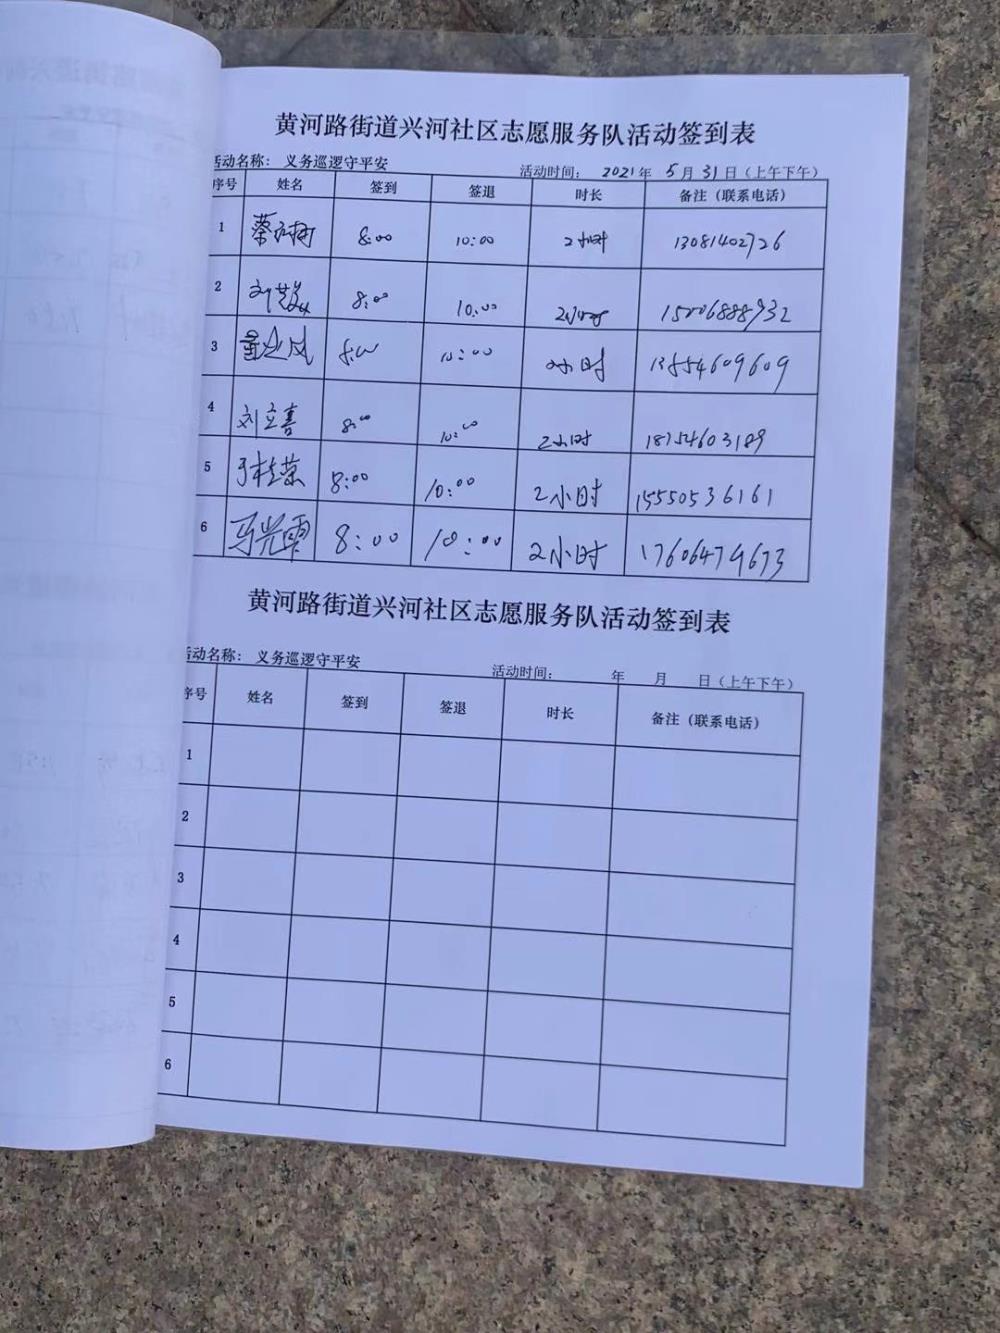 黄河路街道兴河社区志愿服务队活动签到表
活动名称： 义务巡逻守平安 活动时间： 2021年 5月 31日（上午下午）
序号 姓名 签到 签退 时长 备注（联系电话）
1 8:00 10:00 2小时 13081402726
2 8:00 10:00 2小时 15006888932
3 8:00 10:00 2小时 13554609609
4 刘立喜 8:00 10:00 2小时 18754603189
5 于桂荣 8:00 10:00 2小时 15550536161
6 马光雷 8:00 10:00 2小时 17606479673
黄河路街道兴河社区志愿服务队活动签到表
活动名称： 义务巡逻守平安 活动时间： 年 月 日（上午下午）
序号 姓名 签到 签退 时长 备注（联系电话）
1
2
3
4
5
6